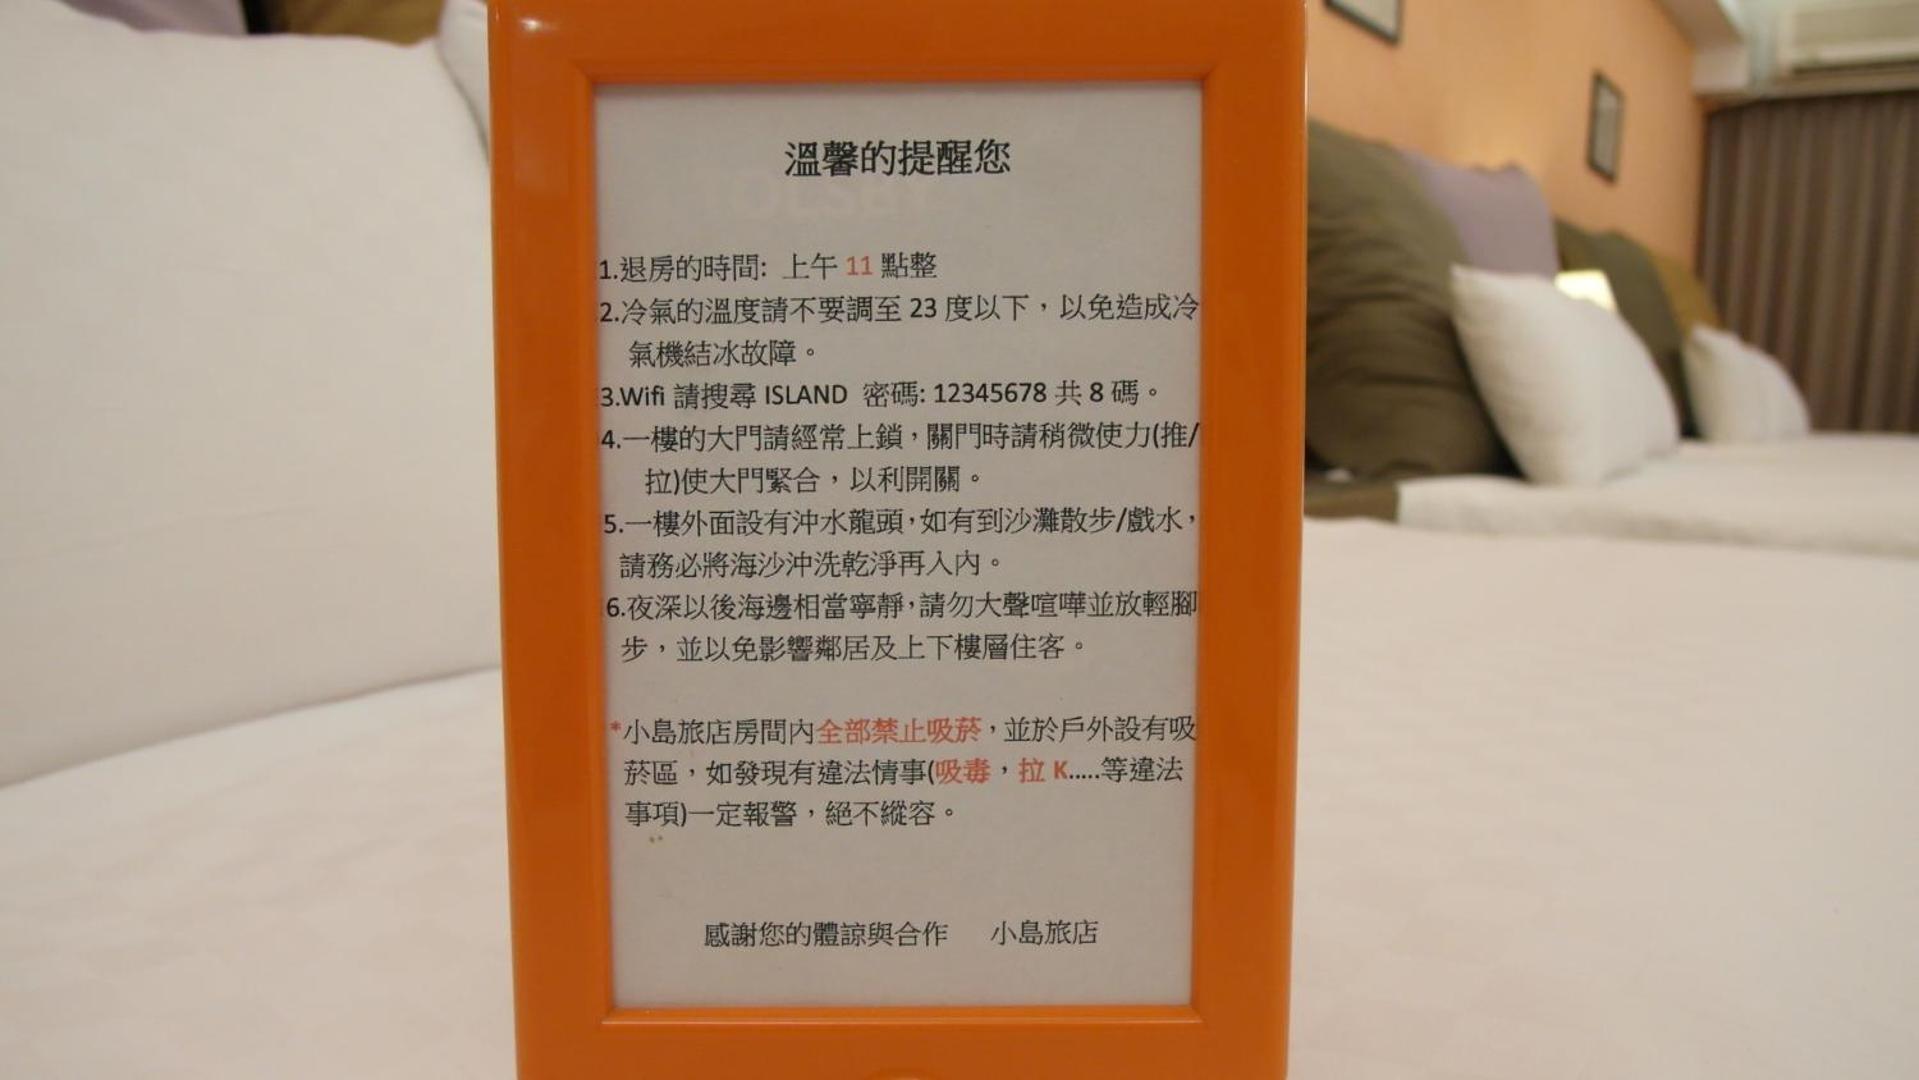 溫馨的提醒您
1.退房的時間: 上午 11 點整
2.冷氣的溫度請不要調至 23 度以下，以免造成冷
氣機結冰故障。
3.Wifi 請搜尋 ISLAND 密碼: 12345678 共 8 碼。
4.一樓的大門請經常上鎖，關門時請稍微使力(推/
拉)使大門緊合，以利開關。
5.一樓外面設有沖水龍頭，如有到沙灘散步/戲水，
請務必將海沙沖洗乾淨再入內。
6.夜深以後海邊相當寧靜，請勿大聲喧嘩並放輕腳
步，並以免影響鄰居及上下樓層住客。
*小島旅店房間內全部禁止吸菸，並於戶外設有吸
菸區，如發現有違法情事(吸毒，拉 K.....等違法
事項)一定報警，絕不縱容。
感謝您的體諒與合作 小島旅店